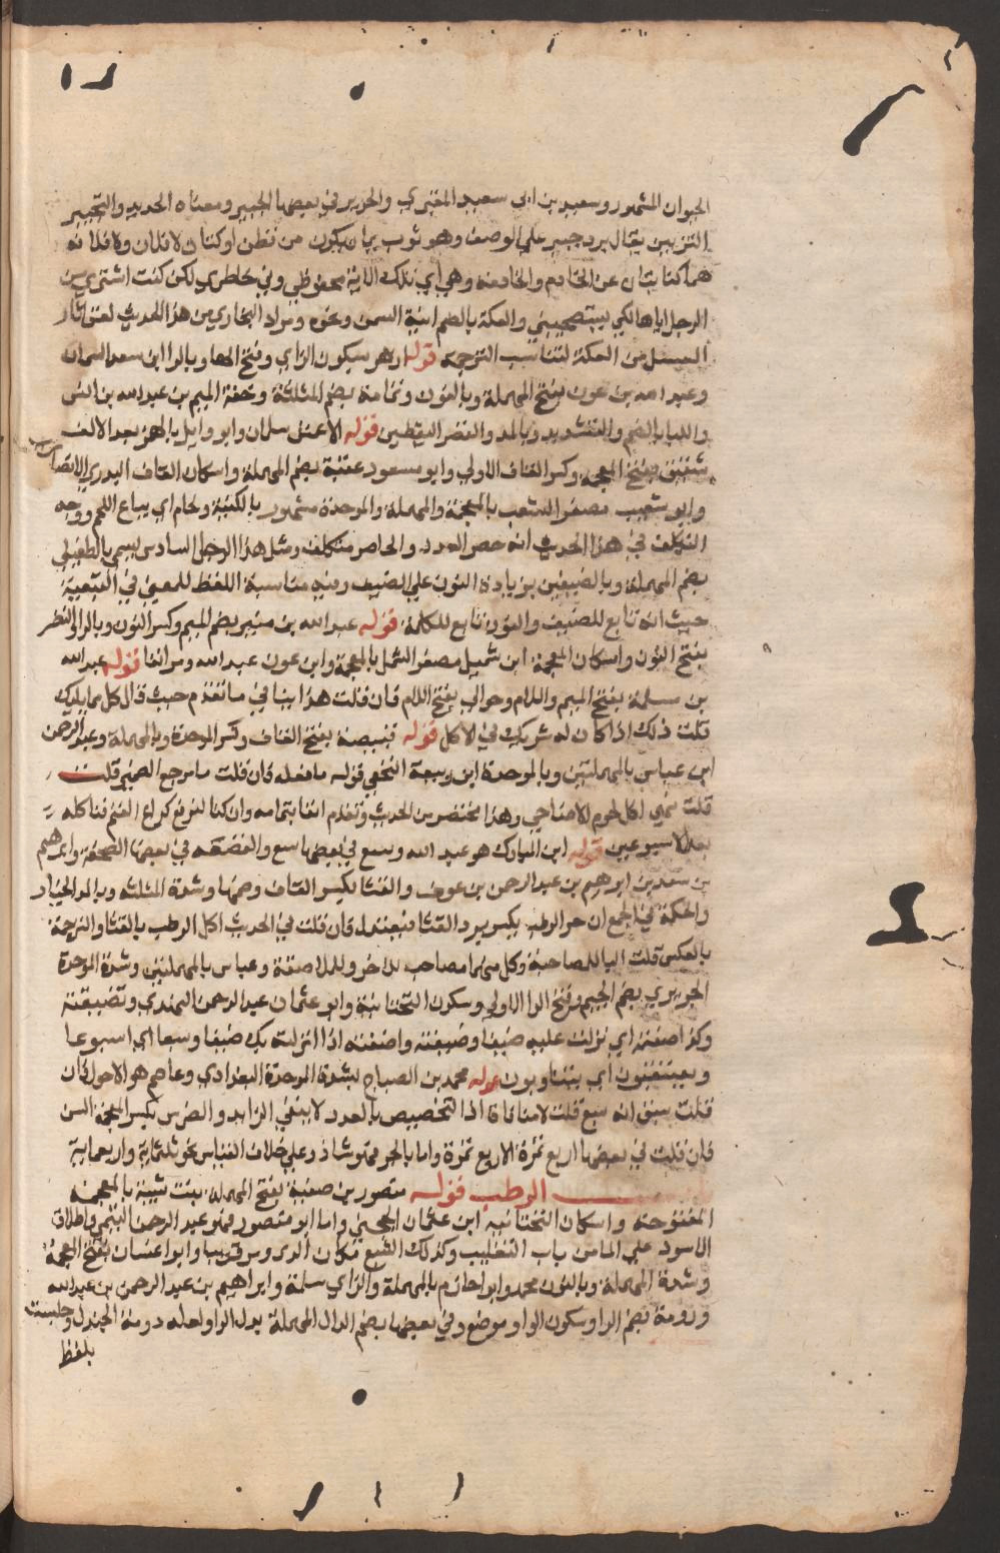 الحيوان المشهور وسعيد بن ابي سعيد المقبري والحرير في بعضها الحبير ومعناه الجديد والتحبير
التزيين يقال برد حبير علي الوصف وهو ثوب يمان يكون من قطن او كتان لا فلان ولا فلانه
هما كنايتان عن الخادم والخادمة وهي اي تلك الاية محفوظي وفي خاطري لكن كنت اشتري من
الرجل اياها لكي يستصحبني والعكة بالضم انية السمن ونحوه ومراد البخاري من هذا الحديث لعق اثار
العسل من العكة لتناسب الترجمة قوله ازهر بسكون الزاي وفتح الهاء وبالراء ابن سعد السمان
وعبد الله بن عون بفتح المهملة وبالنون وثمامة بضم المثلثة وخفة الميم بن عبد الله بن انس
والدبا بالضم والتشديد وبالمد والقصر اليقطين قوله الاعمش سلمان وابو وايل بالهمز بعد الالف
شقيق بفتح المعجمة وكسر القاف الاولي وابو مسعود عقبة بضم المهملة واسكان القاف البدري الانصاري
وابو شعيب مصغر الشعب بالمعجمة والمهملة والموحدة مشهور بالكنية ولحام اي يباع اللحم ووجه
التكلف في هذا الحديث انه حصر العدد والحاصر متكلف ومثل هذا الرجل السادس يسمي بالطفيلي
بضم المهملة وبالضيفن بزيادة النون علي الضيف وفيه مناسبة اللفظ للمعني في التبعية
حيث انه تابع للضيف والنون تابع للكلمة قوله عبد الله بن منير بضم الميم وكسر النون وبالراء والنضر
بفتح النون واسكان المعجمة ابن شميل مصغر الشمل بالمعجمة وابن عون عبد الله ومر انفا قوله عبد الله
بن مسلمة بفتح الميم واللام وحوالي بفتح اللام فان قلت هذا ينافي ما تقدم حيث قال كل مما يليك
قلت ذلك اذا كان له شريك في الاكل قوله قبيصة بفتح القاف وكسر الموحدة وبالمهملة وعبد الرحمن
ابن عباس بالمهملتين وبالموحدة ابن ربيعة النخعي قوله ما فعله فان قلت ما مرجع الضمير قلت
قلت نهي اكل لحوم الاضاحي وهذا مختصر من الحديث وتقدم انفا بتمامه وان كنا لنرفع كراع الغنم فناكله
بعد الاسبوعين قوله ابن المبارك هو عبد الله وسبع في بعضها سع والقصعه في بعضها الصحفة وابرهيم
بن سعد بن ابرهيم بن عبد الرحمن بن عوف والقثا بكسر القاف وضمها وشدة المثلثه وبالمد الخيار
والحكمة في الجمع ان حر الرطب يكسر برد القثا فيعتدل فان قلت في الحديث اكل الرطب بالقثا والترجمة
بالعكس قلت الباء للمصاحبة وكل منهما مصاحب للاخر او للملاصقة وعباس بالمهملتين وشدة الموحدة
الجريري بضم الجيم وفتح الراء الاولي وسكون التحتانية وابو عثمان عبد الرحمن النهدي وتضيفته
وكذا ضفته اي نزلت عليه ضيفا وضيفته واضفته اذا انزلته بك ضيفا وسبعا اي اسبوعا
ويعتقبون اي يتناوبون قوله محمد بن الصباح بشدة الموحدة البغدادي وعاصم هو الاحول فان
قلت سبق انه سبع قلت لا منافاة اذا التخصيص بالعدد لا ينفي الزايد والضرس بكسر المعجمة السن
فان قلت في بعضها اربع تمرة الاربع تمرة واما بالجر فهو شاذ وعلي خلاف القياس نحو ثلثماية واربعماية
الرطب قوله منصور بن صفية بفتح المهملة بنت شيبة بالمعجمة
المفتوحة واسكان التحتانية ابن عثمان الحجبي واما ابو منصور فهو عبد الرحمن التيمي واطلاق
الاسود علي الماء من باب التغليب وكذلك الشبع مكان الري ومر قريبا وابو اغسان بفتح المعجمة
وشدة المهملة وبالنون محمد وابو احازم بالمهملة والزاي سلمة وابراهيم بن عبد الرحمن بن عبد الله
ورومة بضم الراء وسكون الواو موضع وفي بعضها بضم الدال المهملة بدل الراء ولعله دومة الجندل وجلست
بلفظ